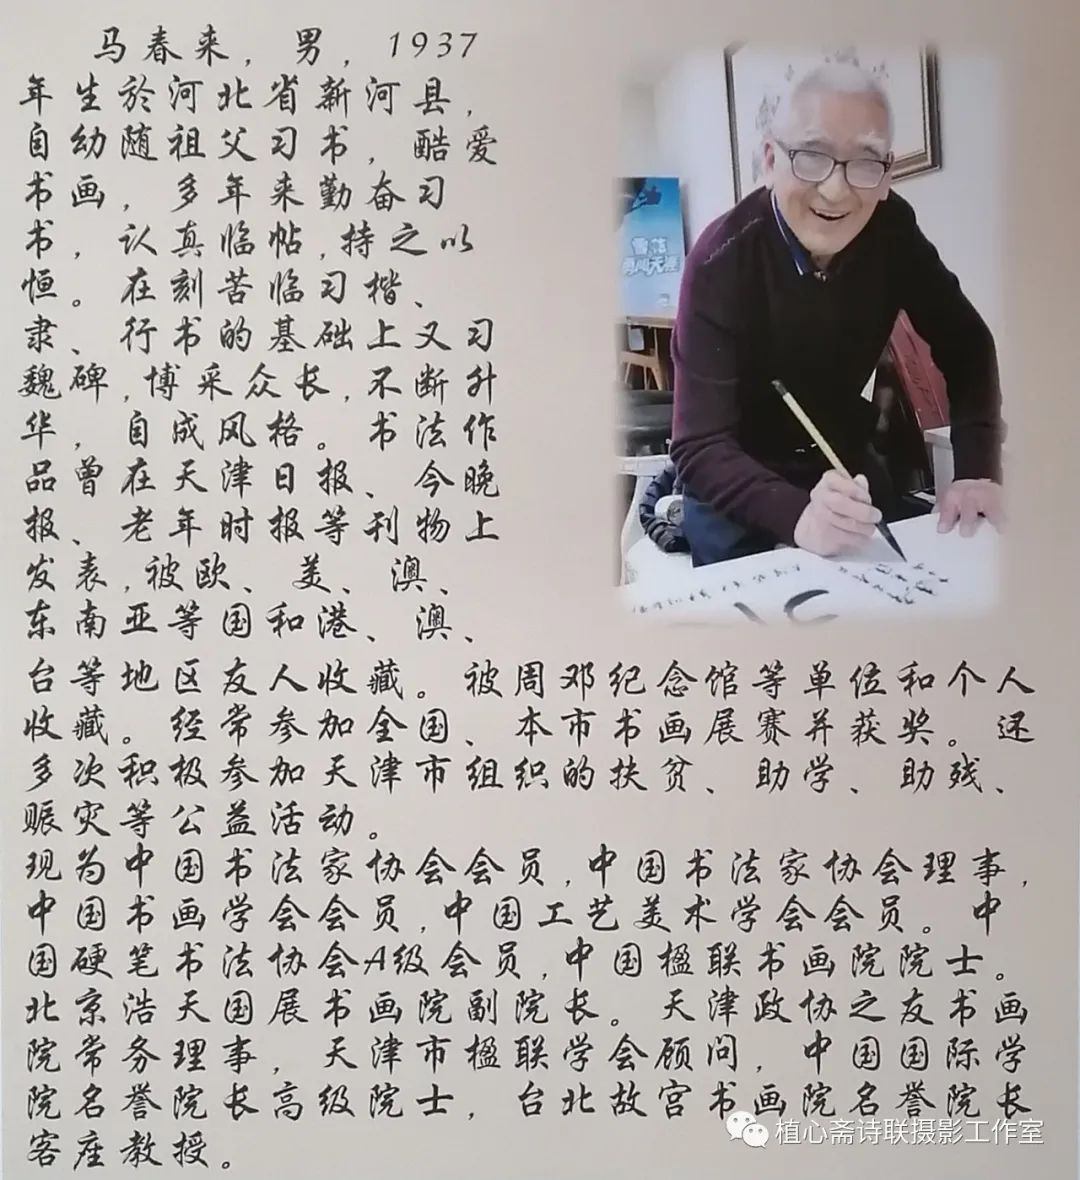 马春来，男，1937
年生於河北省新河县，
自幼随祖父习书，酷爱
书画，多年来勤奋习
书，认真临帖，持之以
恒。在刻苦临习楷、
隶、行书的基础上又习
魏碑，博采众长，不断升
华，自成风格。书法作
品曾在天津日报、今晚
报、老年时报等刊物上
发表，被欧、美、澳、
东南亚等国和港、澳、
台等地区友人收藏。被周邓纪念馆等单位和个人
收藏。经常参加全国、本市书画展赛并获奖。还
多次积极参加天津市组织的扶贫、助学、助残、
赈灾等公益活动。
现为中国书法家协会会员，中国书法家协会理事，
中国书画学会会员，中国工艺美术学会会员。中
国硬笔书法协会A级会员，中国楹联书画院院士。
北京浩天国展书画院副院长。天津政协之友书画
院常务理事，天津市楹联学会顾问，中国国际学
院名誉院长高级院士，台北故宫书画院名誉院长
客座教授。
植心斋诗联摄影工作室